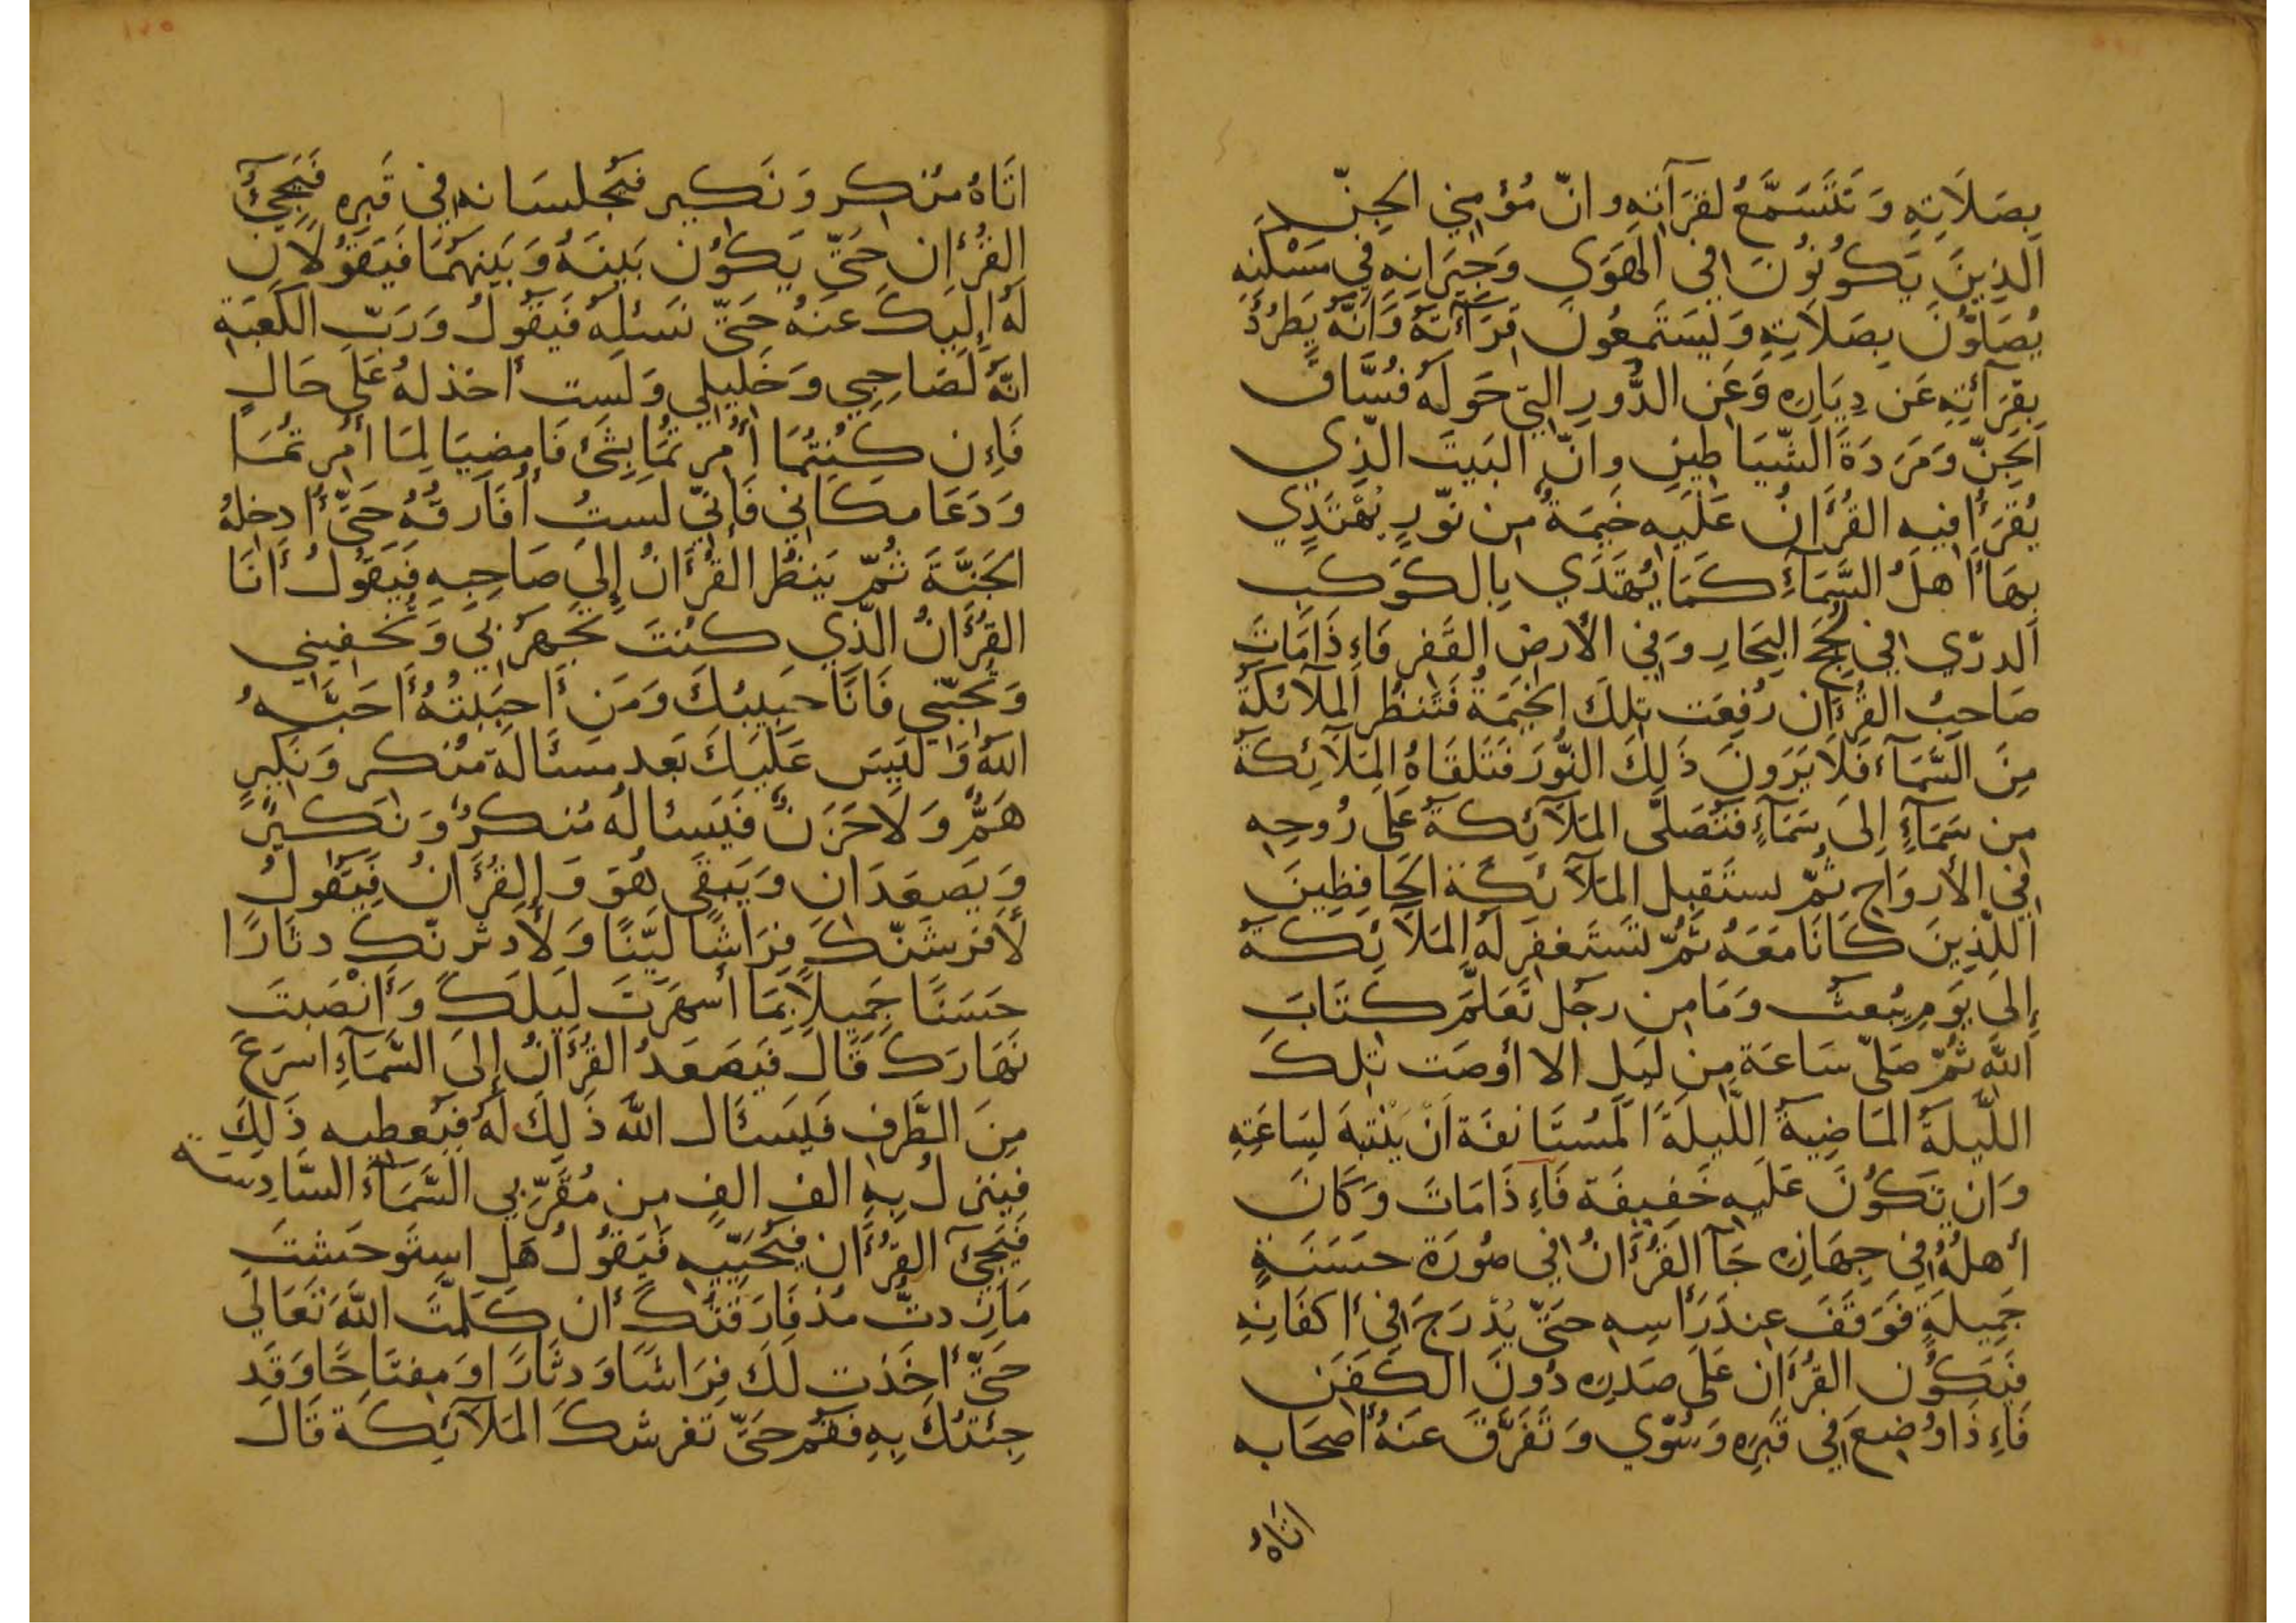 بِصَلَاتِهِ وَتَتَسَمَّعُ لقرَآتِهِ وانّ مُؤمِنِي الجِنّ
الَّذِينَ يَكُونُونَ فِي الهَوَى وَجِيرَانِهِ فِي مَسْكَنِهِ
يُصَلّونَ بِصَلَاتِهِ وَيَستَمِعُونَ قِرَآءَتَهُ وَانّهُ يَطرُدُ
بِقِرَآئتِهِ عَن دِيَارِه وَعَن الدُّورِ التِي حَولَهُ فُسَّاقَ
الجِنّ وَمَرَدَةَ الشّيَاطِينِ وانّ البَيتَ الّذِي
يُقرَأ فِيهِ القُرَأنُ عَلَيهِ خَيمَةٌ مِن نّورٍ يَهْتَدِي
بِهَا أهلُ السَّمَآءِ كَمَا يُهتَدَي بِالكَوكَبِ
الدرّي فِي لُجَجِ البِحَارِ وَفِي الأرضِ القَفرِ فَاءِذَا مَاتَ
صَاحِبُ القُرَءان رُفِعَت تِلكَ الخيَمَةُ فَتَنظُر المَلآئكَةُ
مِنَ السَّمَآءِ فَلَا يَرَونَ ذَلِكَ النّورَ فَتَلقَاهُ المَلَآئِكَةُ
مِن سَمَآءٍ إلَى سَمَآءٍ فَتُصَلّى المَلَآئِكةُ عَلَى رُوحِهِ
فِي الأروَاحِ ثُمّ تستَقبِل المَلَآئكَةَ الحَافِظِينَ
اللّذِينَ كَانَا مَعَهُ ثُمّ تَستَغفِر لَهُ المَلَآئكَةُ
إلَى يَومِ يُبعثُ وَمَا مِن رجُل تَعَلّمَ كتَابَ
اللَّه ثُمّ صَلّى سَاعَة مِن لَيلٍ الا أوصَت تِلكَ
اللَّيلَةُ المَاضِيةُ اللَّيلَةَ المُستَانفَة اَنْ يَنْتبِهَ لِسَاعَتِهِ
وَان تَكُونَ عَلَيهِ خَفِيفَة فَاءِذَا مَاتَ وَكَانَ
أهلُهُ فِي جِهَازِه جَآ القُرَأنُ فِي صُورَة حسَنَةٍ
جَمِيلَةٍ فَوَقَفَ عِندَ رَأسِهِ حتَّى يُدْرَجَ فِي أكفَانِهِ
فَيَكُون القُرَأن عَلَى صَدرِه دُونَ الكَفَنِ
فَاءِذَا وُضِعَ فِي قَبرِهِ وَسُوّي وَتَفَرّقَ عَنهُ أصحَابه
اتاهُ
اتَاهُ مُنكِر وَنَكِير فيُجلسَانه فِي قَبرِهِ فَيَجِيُ
القُرءَان حَتّى يَكُون بَينَهُ وَبَينَهُمَا فَيَقُولَانِ
لَهُ إلَيكَ عَنهُ حَتّى نسَئلهُ فَيقُولُ وَرَبّ الكَعبَةِ
انّهُ لَصَاحِبِي وَخَلِيلِي وَلَست أخذلهُ عَلَى حَالٍ
فَاءِن كُنتُمَا أُمِرتُمَا بِشَئ فَامضِيَا لِمَا أُمِرتُمَا
وَدَعَا مكَانِي فَإنّي لستُ أفَارقُهُ حَتّى أدخِلهُ
الجَنَّةَ ثُمّ يَنظُر القُرَأنُ إلَى صَاحِبِهِ فَيَقُولُ أنَا
القُرَأنُ الّذِي كنتَ تجهَر بِي وَتخفِينِي
وَتُحبّنِي فَانَا حَبِيبُكَ وَمَن أحبَبتُهُ أحَبّهُ
اللَّهُ وَلَيسَ عَلَيكَ بَعد مسئَالَة مُنكر وَنكِيرٍ
هَمُّ وَلاحَزَنٌ فَيَسئالُهُ مُنكرٌ وَنكِيرٌ
وَيَصعَدَان وَيَبقَى هُوَ وَالقُرَأنُ فَيَقُولُ
لأفرشَنّكَ فِرَاشًا ليّنًا وَلأدثرنّكَ دثَارًا
حسَنًا جَمِيلاً بِمَا أسهَرتَ لَيلَكَ وَأنْصَبتَ
نَهَارَكَ قَالَ فَيَصعَدُ القُرَأنُ إلَى السَّمَآءِ اسرَعَ
مِنَ الطَّرفِ فَيَسئَالُ اللَّه ذَلِكَ لَهُ فيُعطِيهِ ذَلِكَ
فيَنزِلُ بِهِ الف الفٍ مِن مُقَرّبِي السَّمَآءِ السَّادِسَة
فَيَجِئُ القُرَأن فيُحَيّيهِ فَيَقُولُ هَل استَوحَشتَ
مَازِدتُ مُذ فَارَقتُكَ أن كَلّمتُ اللَّهَ تَعَالَى
حَتّى أخَذت لَكَ فِرَاشًا وَدِثَارًا وَمِفتَاحًا وَقَد
جِئتُكَ بِهِ فقُم حَتّى تفرِشكَ المَلَآئِكَة قَالَ